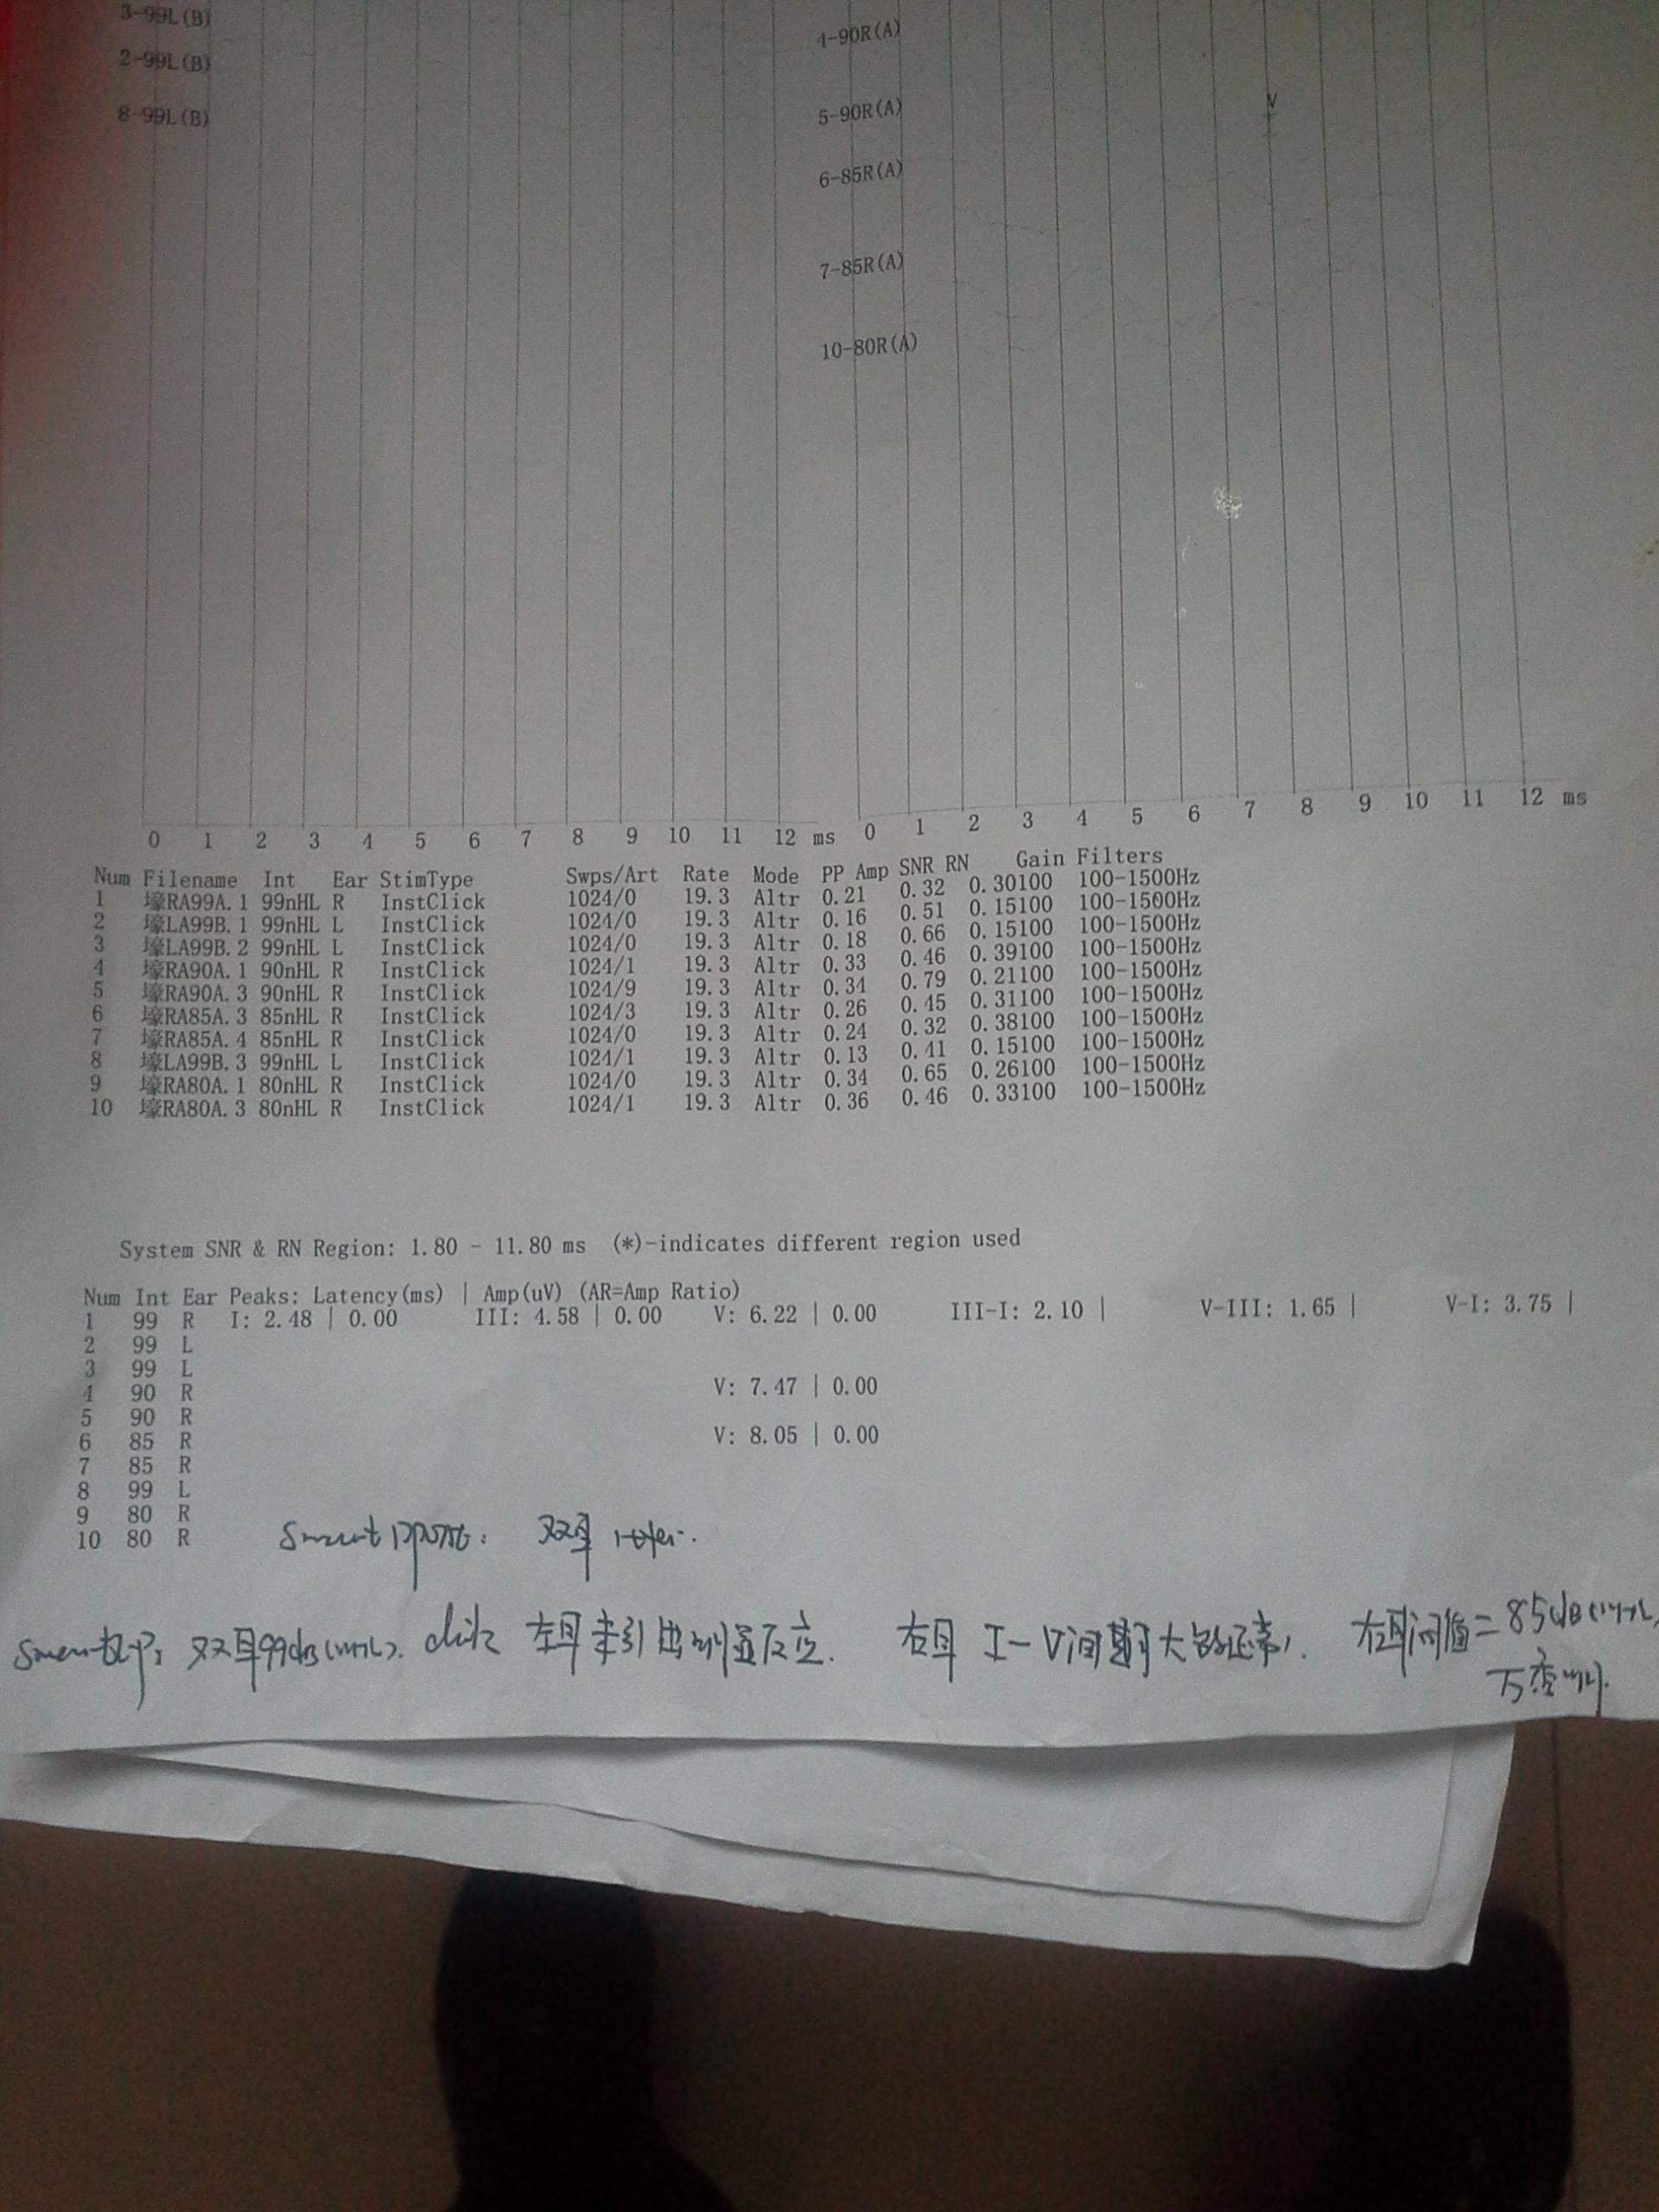 3-99L(B)
2-99L(B)
8-99L(B)
4-90R(A)
5-90R(A)
6-85R(A)
7-85R(A)
10-80R(A)
V
0 1 2 3 4 5 6 7 8 9 10 11 12 ms
0 1 2 3 4 5 6 7 8 9 10 11 12 ms
Num Filename Int Ear StimType Swps/Art Rate Mode PP Amp SNR RN Gain Filters
1 壕RA99A.1 99nHL R InstClick 1024/0 19.3 Altr 0.21 0.32 0.30100 100-1500Hz
2 壕LA99B.1 99nHL L InstClick 1024/0 19.3 Altr 0.16 0.51 0.15100 100-1500Hz
3 壕LA99B.2 99nHL L InstClick 1024/0 19.3 Altr 0.18 0.66 0.15100 100-1500Hz
4 壕RA90A.1 90nHL R InstClick 1024/1 19.3 Altr 0.33 0.46 0.39100 100-1500Hz
5 壕RA90A.3 90nHL R InstClick 1024/9 19.3 Altr 0.34 0.79 0.21100 100-1500Hz
6 壕RA85A.3 85nHL R InstClick 1024/3 19.3 Altr 0.26 0.45 0.31100 100-1500Hz
7 壕RA85A.4 85nHL R InstClick 1024/0 19.3 Altr 0.24 0.32 0.38100 100-1500Hz
8 壕LA99B.3 99nHL L InstClick 1024/1 19.3 Altr 0.13 0.41 0.15100 100-1500Hz
9 壕RA80A.1 80nHL R InstClick 1024/0 19.3 Altr 0.34 0.65 0.26100 100-1500Hz
10 壕RA80A.3 80nHL R InstClick 1024/1 19.3 Altr 0.36 0.46 0.33100 100-1500Hz
System SNR & RN Region: 1.80 - 11.80 ms (*)-indicates different region used
Num Int Ear Peaks: Latency(ms) | Amp(uV) (AR=Amp Ratio)
1 99 R I: 2.48 | 0.00 III: 4.58 | 0.00 V: 6.22 | 0.00 III-I: 2.10 | V-III: 1.65 | V-I: 3.75 |
2 99 L
3 99 L
4 90 R V: 7.47 | 0.00
5 90 R
6 85 R V: 8.05 | 0.00
7 85 R
8 99 L
9 80 R
10 80 R
双耳 refer.
双耳99dB(nHL). click 左耳未引出 反应. 右耳 I-V间期大致正常, 右耳阈值=85dB(nHL)